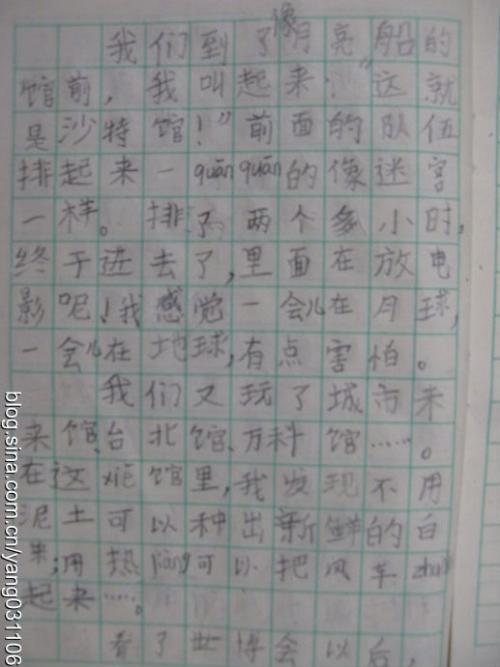 我们到了像月亮船的
馆前，我叫起来："这就
是沙特馆！"前面的队伍
排起来一quān quān的像迷宫
一样。排了两个多小时，
终于进去了，里面在放电
影呢！我感觉一会儿在月球，
一会儿在地球，有点害怕。
我们又玩了城市未
来馆、台北馆、万科馆……。
在这xiē馆里，我发现不用
泥土可以种出新鲜的白
菜；用热jiāng可以把风车zhuàn
起来……。
看了世博会以后，
blog.sina.com.cn/yang031106